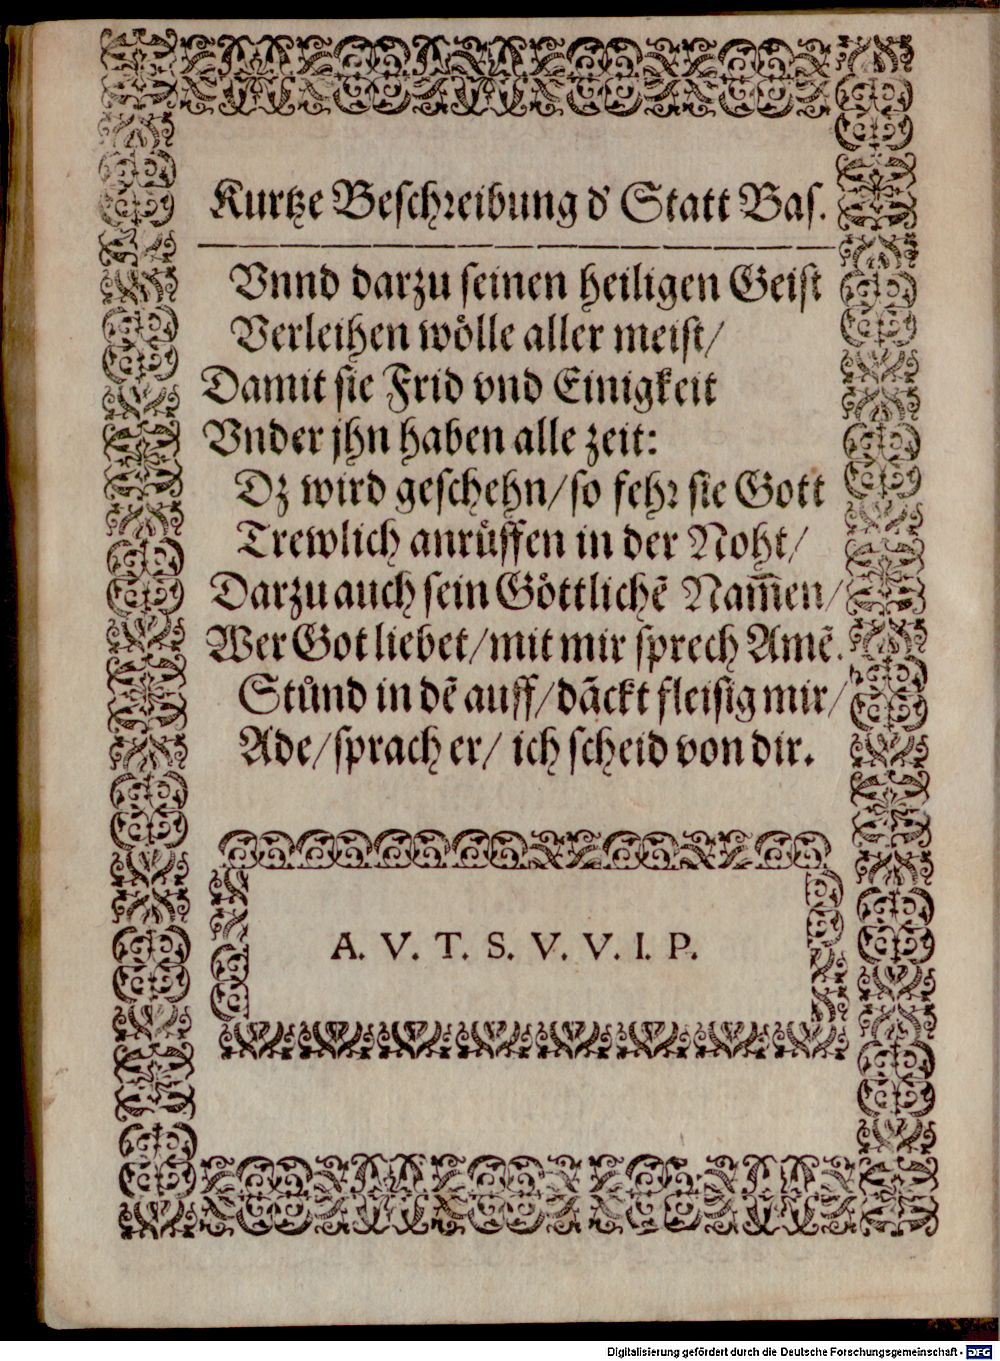 Kurtze Beschreibung d' Statt Bas.
Vnnd darzu seinen heiligen Geist
Verleihen wölle aller meist/
Damit sie Frid vnd Einigkeit
Vnder jhn haben alle zeit:
Dz wird geschehn/so fehr sie Gott
Trewlich anrůffen in der Noht/
Darzu auch sein Göttlichē Nam̃en/
Wer Got liebet/mit mir sprech Amē.
Stůnd in dē auff/dāckt fleisig mir/
Ade/sprach er/ ich scheid von dir.
A. V. T. S. V. V. I. P.
Digitalisierung gefördert durch die Deutsche Forschungsgemeinschaft - DFG